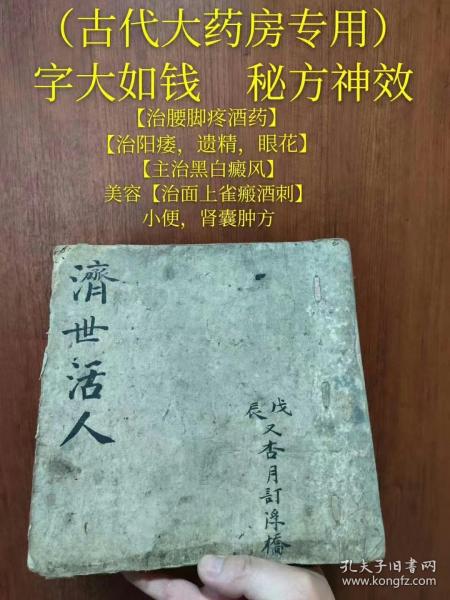 （古代大药房专用）
字大如钱 秘方神效
【治腰脚疼酒药】
【治阳痿，遗精，眼花】
【主治黑白癜风】
美容【治面上雀瘢酒刺】
小便，肾囊肿方
濟世活人
戊辰
又杏月訂浮橋
孔夫子旧书网
www.kongfz.com